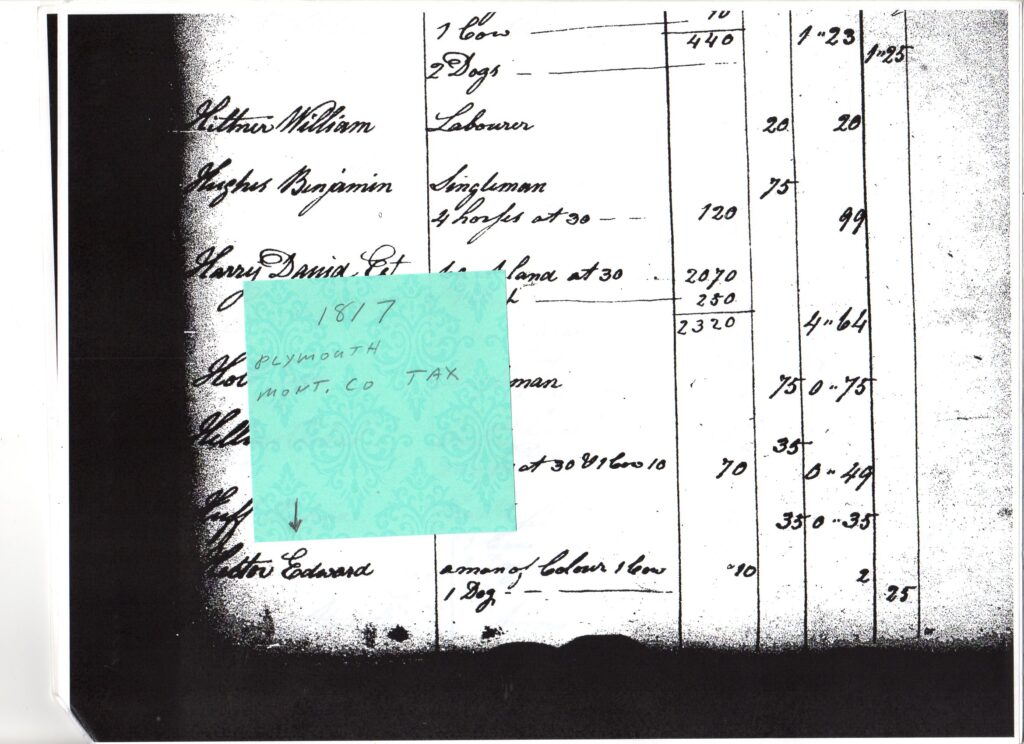 10
1 Cow 440 1"23
1"25
2 Dogs
Hittner William Labourer 20 20
Hughes Benjamin Singleman 75
4 horses at 30 120 99
Harry David Est land at 30 2070
250
2320 4"64
1817
PLYMOUTH
MONT. CO TAX
man 75 0"75
35
at 30 & 1 Cow 10 70 0"49
35 0"35
Hector Edward a man of Colour 1 Cow "10 2
1 Dog 25